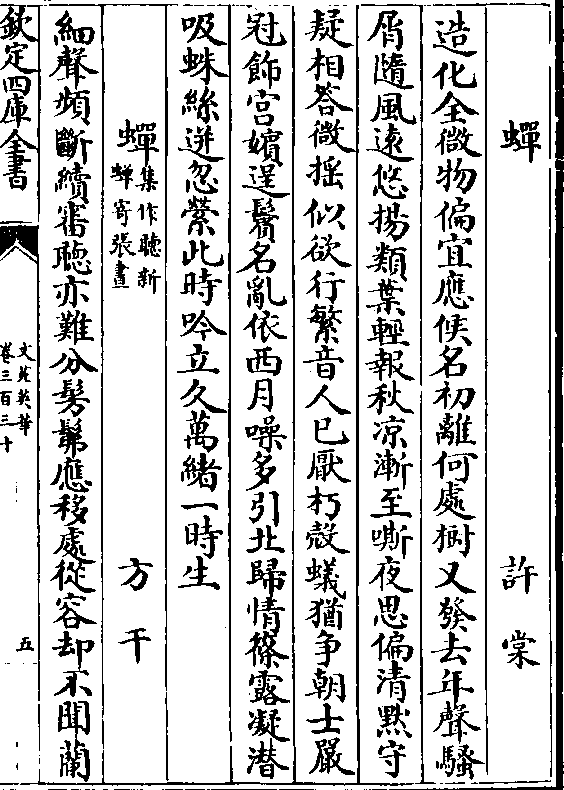 蟬　許棠
造化全微物偏宜應候名初離何處樹又發去年聲騷
屑隨風遠悠揚類葉輕報秋凉漸至嘶夜思偏清黙守
疑相答微揺似欲行繁音人已厭朽殼蟻猶争朝士嚴
冠飾宫嬪逞鬢名亂依西月噪多引北歸情篠露凝潜
吸蛛絲迸忽縈此時吟立久萬緒一時生
蟬集作聽新蟬寄張晝　方干
細聲頻斷續審聽亦難分髣髴應移處從容却不聞蘭
欽定四庫全書
文苑英華
卷三百三十
五